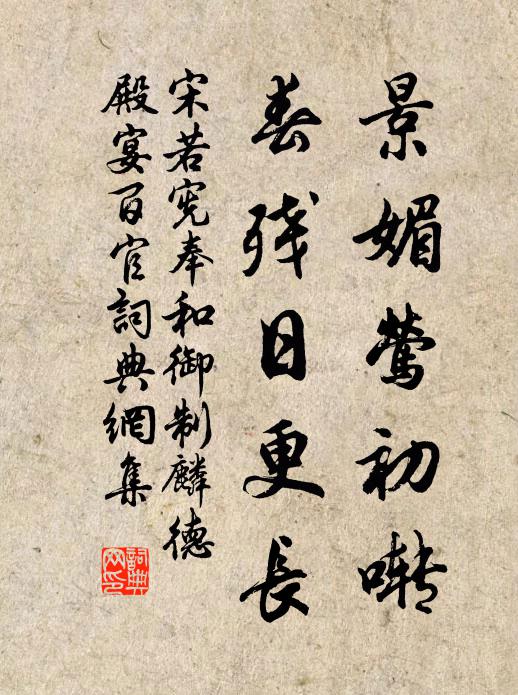 景媚鶯初囀
春殘日更長
宋若憲奉和御制麟德
殿宴百官詞典網集
詞典網印